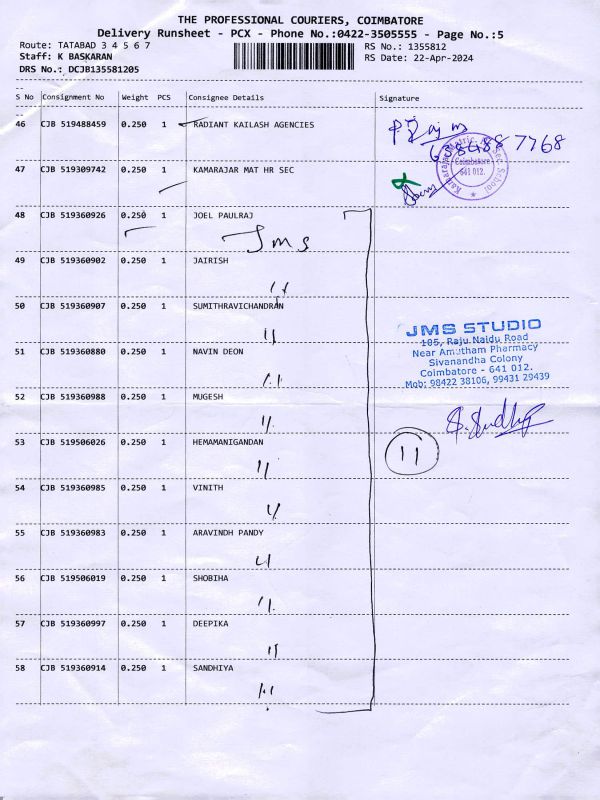 THE PROFESSIONAL COURIERS, COIMBATORE
Delivery Runsheet - PCX - Phone No.:0422-3505555 - Page No.:5
Route: TATABAD 3 4 5 6 7
RS No.: 1355812
Staff: K BASKARAN
RS Date: 22-Apr-2024
DRS No.: DCJB135581205
S No Consignment No Weight PCS Consignee Details Signature
46 CJB 519488459 0.250 1 RADIANT KAILASH AGENCIES
7768
47 CJB 519309742 0.250 1 KAMARAJAR MAT HR SEC
Coimbatore
641 012.
48 CJB 519360926 0.250 1 JOEL PAULRAJ
Jms
49 CJB 519360902 0.250 1 JAIRISH
50 CJB 519360907 0.250 1 SUMITHRAVICHANDRAN
JMS STUDIO
105, Raju Naidu Road
Near Amutham Pharmacy
Sivanandha Colony
Coimbatore - 641 012.
Mob: 98422 38106, 99431 29439
51 CJB 519360880 0.250 1 NAVIN DEON
52 CJB 519360988 0.250 1 MUGESH
53 CJB 519506026 0.250 1 HEMAMANIGANDAN
11
54 CJB 519360985 0.250 1 VINITH
55 CJB 519360983 0.250 1 ARAVINDH PANDY
56 CJB 519506019 0.250 1 SHOBIHA
57 CJB 519360997 0.250 1 DEEPIKA
58 CJB 519360914 0.250 1 SANDHIYA